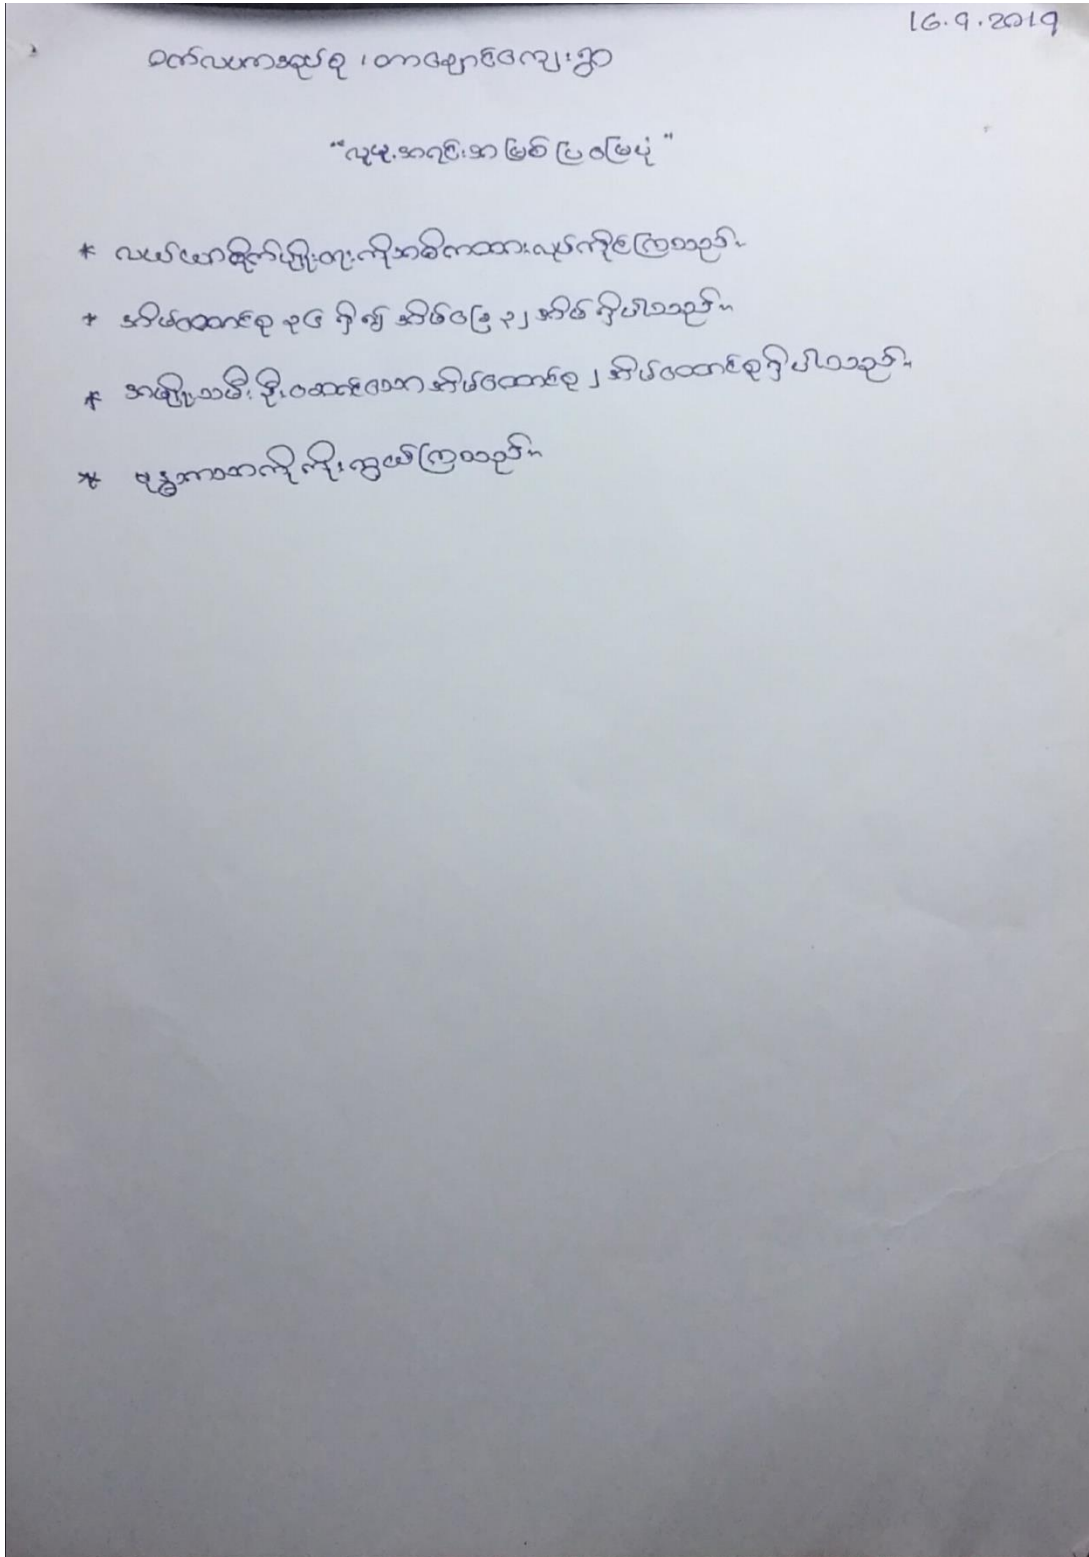 16.9.2019
ဇက်လပကအုပ်စု ၊ တာချောင်ကျေးရွာ
"လူမှုအရင်းအမြစ်ပြမြေပုံ"
* လယ်ယာစိုက်ပျိုးရေးကိုအဓိကထားလုပ်ကိုင်ကြသည်။
* အိမ်ထောင်စု ၃၄ ရှိ၍ အိမ်ခြေ ၃၂ အိမ် ရှိပါသည်။
* အမျိုးသမီးဦးဆောင်သောအိမ်ထောင်စု ၂ အိမ်ထောင်စုရှိပါသည်။
* ဗုဒ္ဓဘာသာကိုကိုးကွယ်ကြသည်။